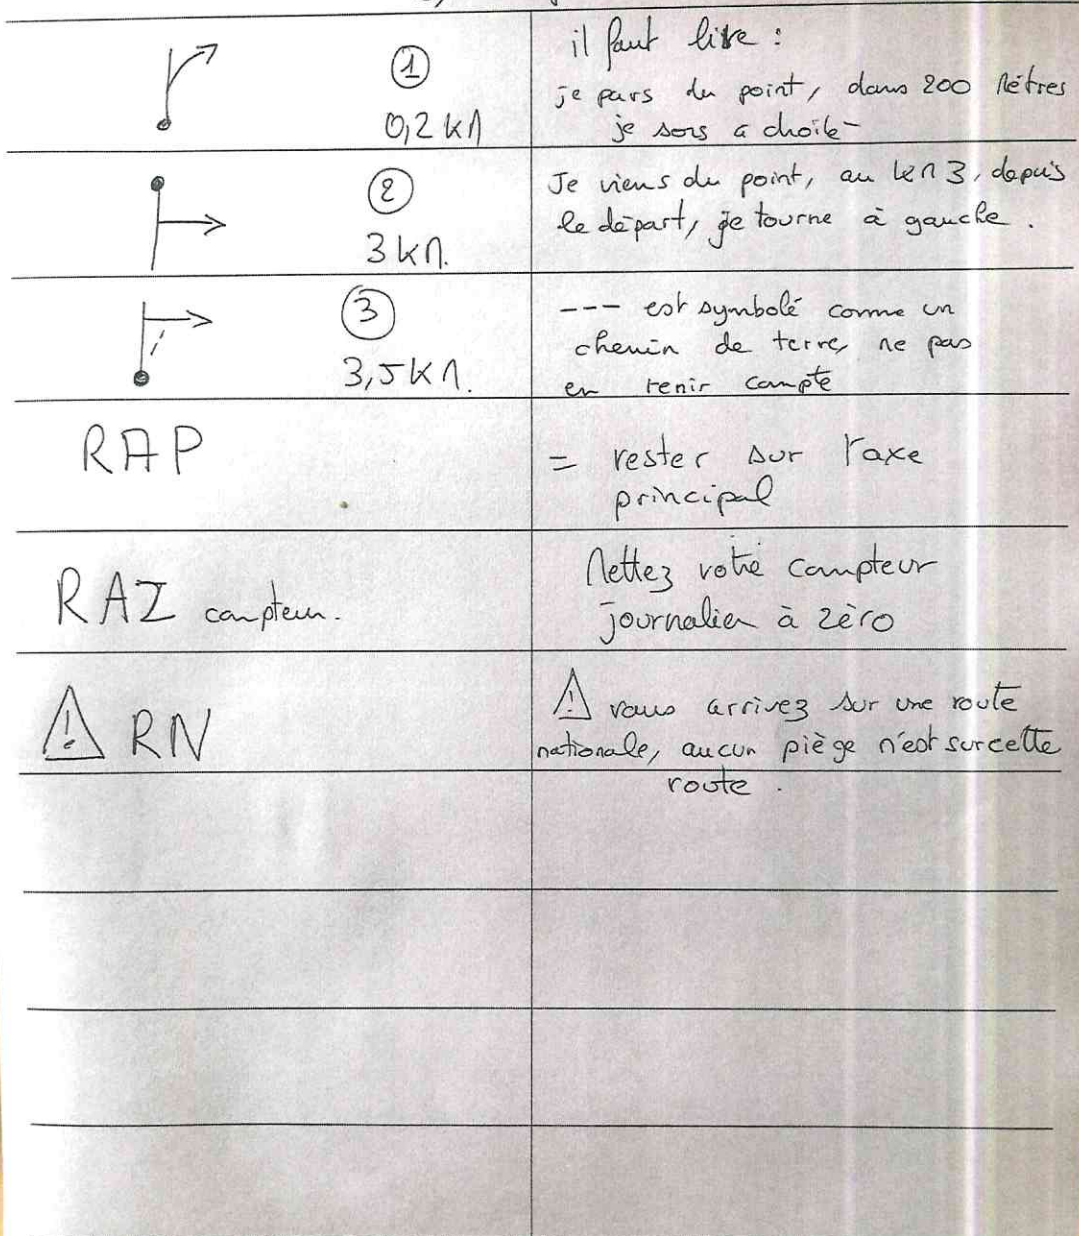 ① il faut lire :
0,2 KM je pars du point, dans 200 Mètres
je sors a droite
② Je viens du point, au km 3, depuis
3 KM. le départ, je tourne à gauche.
③ --- est symbolé comme un
chemin de terre, ne pas
3,5 KM. en tenir compte
RAP = rester sur l'axe
principal
RAZ compteur. Mettez votre compteur
journalier à zèro
⚠ RN ⚠ vous arrivez sur une route
nationale, aucun piège n'est sur cette
route.